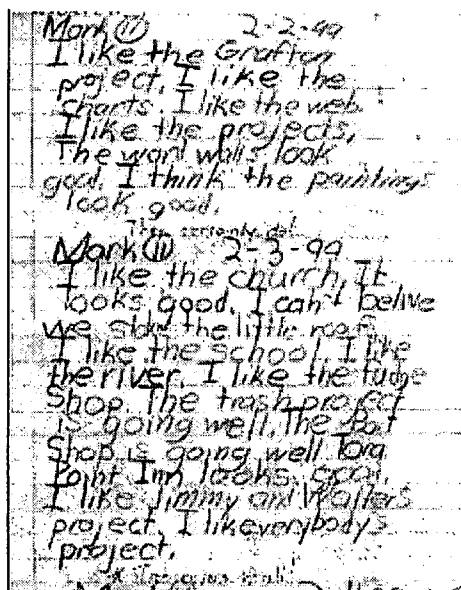 Mark 11 2-2-99
I like the Grafton
project. I like the
charts. I like the web.
I like the projects.
The word walls look
good. I think the paintings
look good.
They certainly do!
Mark 11 2-3-99
I like the church. It
looks good. I can't belive
we the little
I like the school. I like
the river. I like the fudge
Shop. The trash project
is going well. The Boat
Shop is going well Tara
Point Inn looks cool.
I like Jimmy and Walters
project. I like everybody's
project.